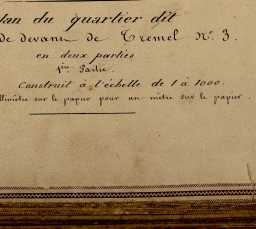 lan du quartier dit
de devant de Tremel N.° 3.
en deux parties
1ère Partie.
Construit à l'échelle de 1 à 1000.
llimètre sur le papier pour un mètre sur le papier.